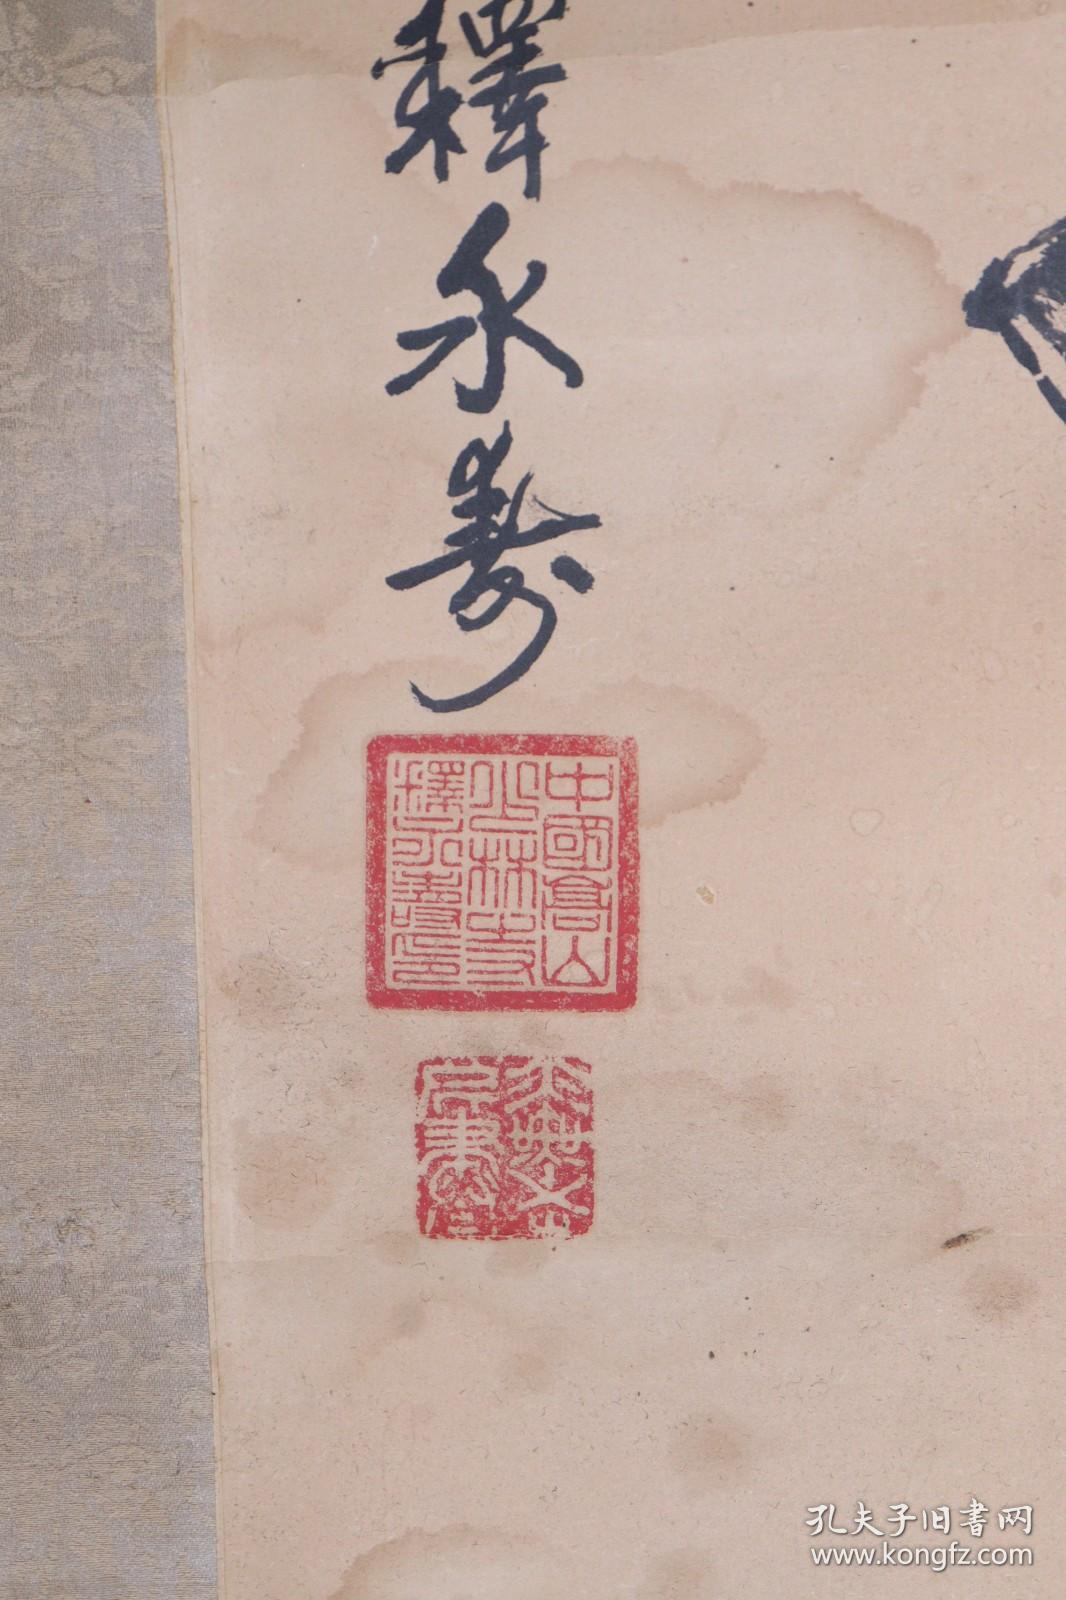 釋永壽
中國嵩山
少林寺
釋永壽印
孔夫子旧書网
www.kongfz.com